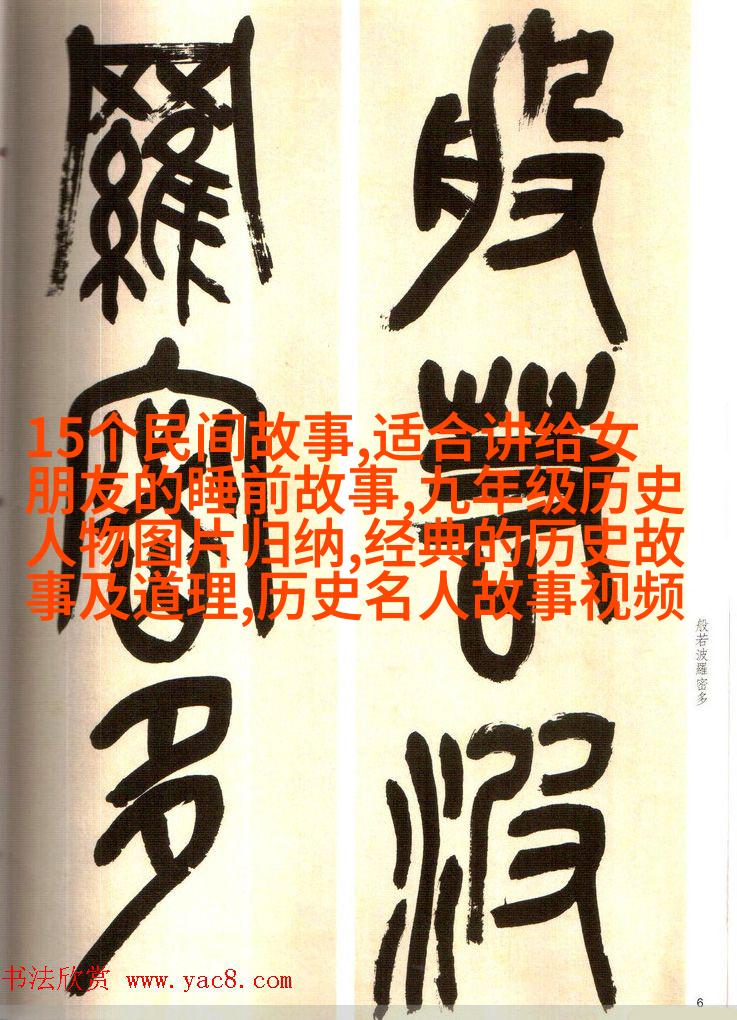 般若波
羅密多
15个民间故事,适合讲给女
朋友的睡前故事,九年级历史
人物图片归纳,经典的历史故
事及道理,历史名人故事视频
般若波羅密多
书法欣赏 www.yac8.com
6